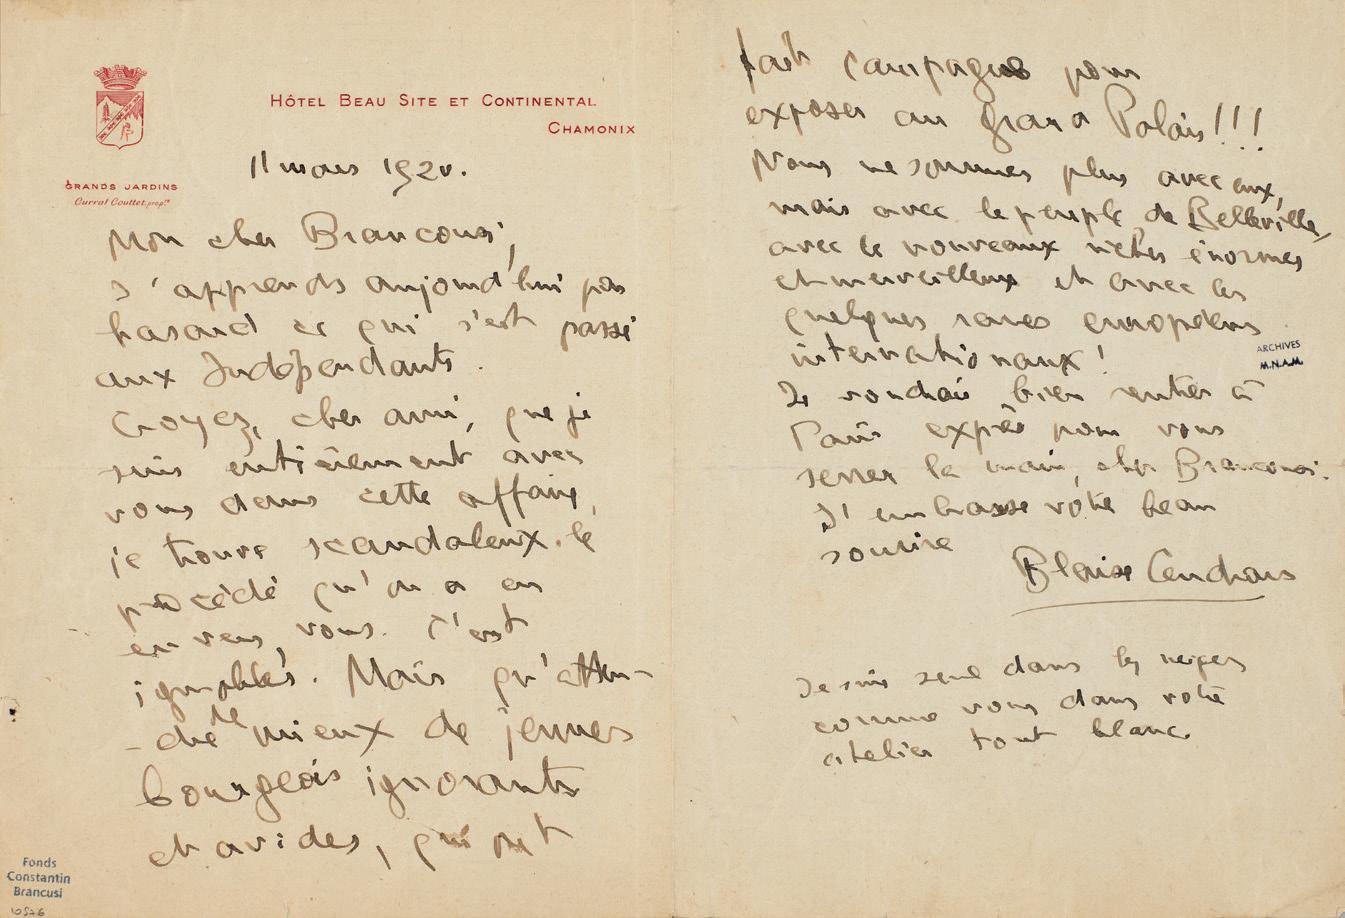 HÔTEL BEAU SITE ET CONTINENTAL
CHAMONIX
GRANDS JARDINS
Curral Couttet. propre
11 mars 1920.
Mon cher Brancousi,
J'apprends aujourd'hui par
hasard ce qui s'est passé
aux Indépendants.
Croyez, cher ami, que je
suis entièrement avec
vous dans cette affaire,
je trouve scandaleux le
procédé qu'on a eu
envers vous. C'est
ignoble. Mais qu'atten-
-dre mieux de jeunes
bourgeois ignorants
et avides, qui ont
fait campagne pour
exposer au Grand Palais!!!
Nous ne sommes plus avec eux,
mais avec le peuple de Belleville,
avec le nouveaux riches énormes
et merveilleux et avec les
quelques rares européens
internationaux!
Je voudrais bien rentrer à
Paris exprès pour vous
serrer la main, cher Brancousi.
J'embrasse votre beau
sourire
Blaise Cendrars
Je suis seul dans les neiges
comme vous dans votre
atelier tout blanc.
ARCHIVES
M.N.A.M.
Fonds
Constantin
Brancusi